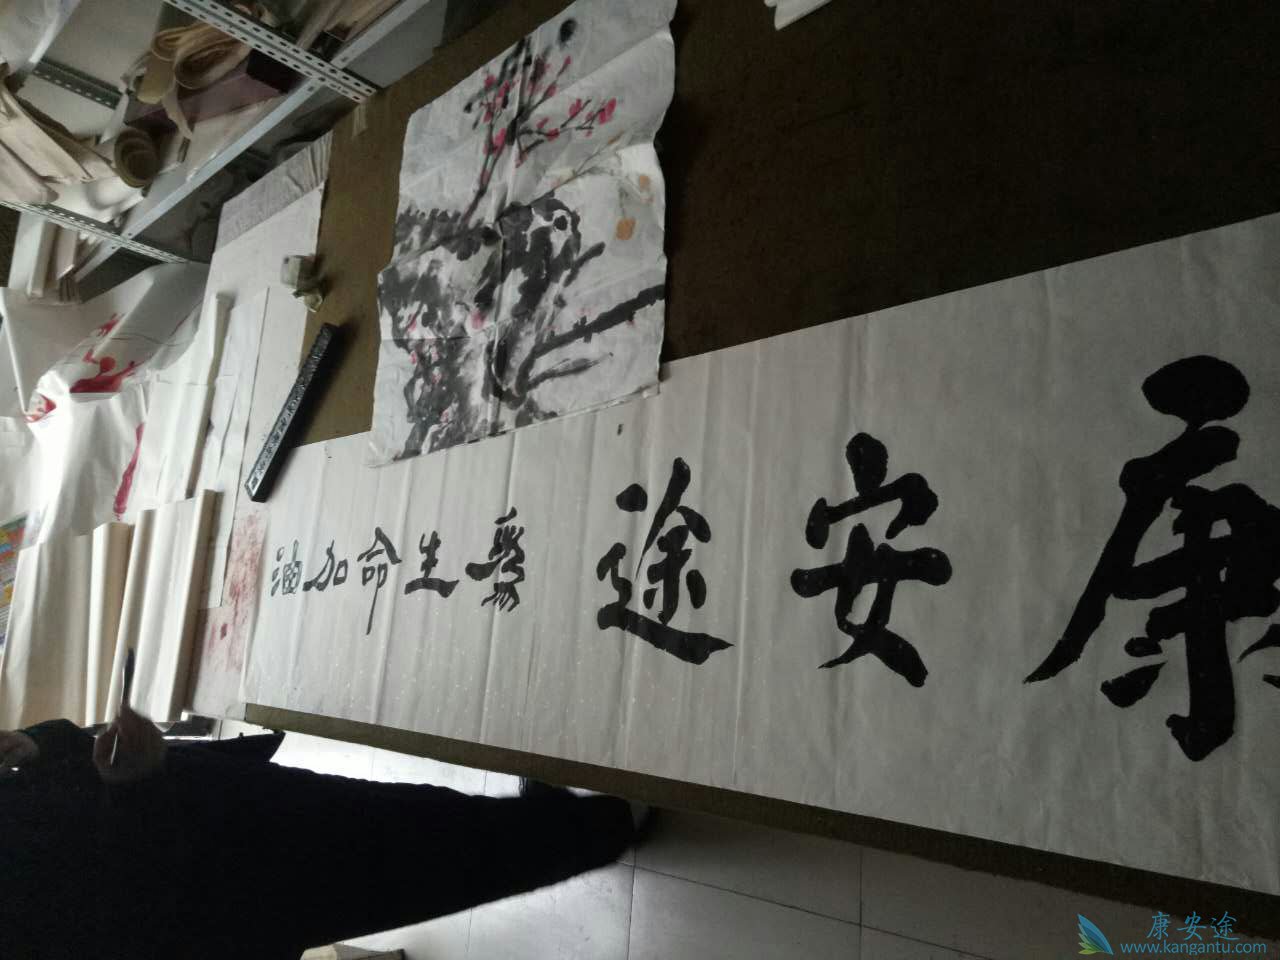 康安途 爲生命加油
康安途
www.kangantu.com